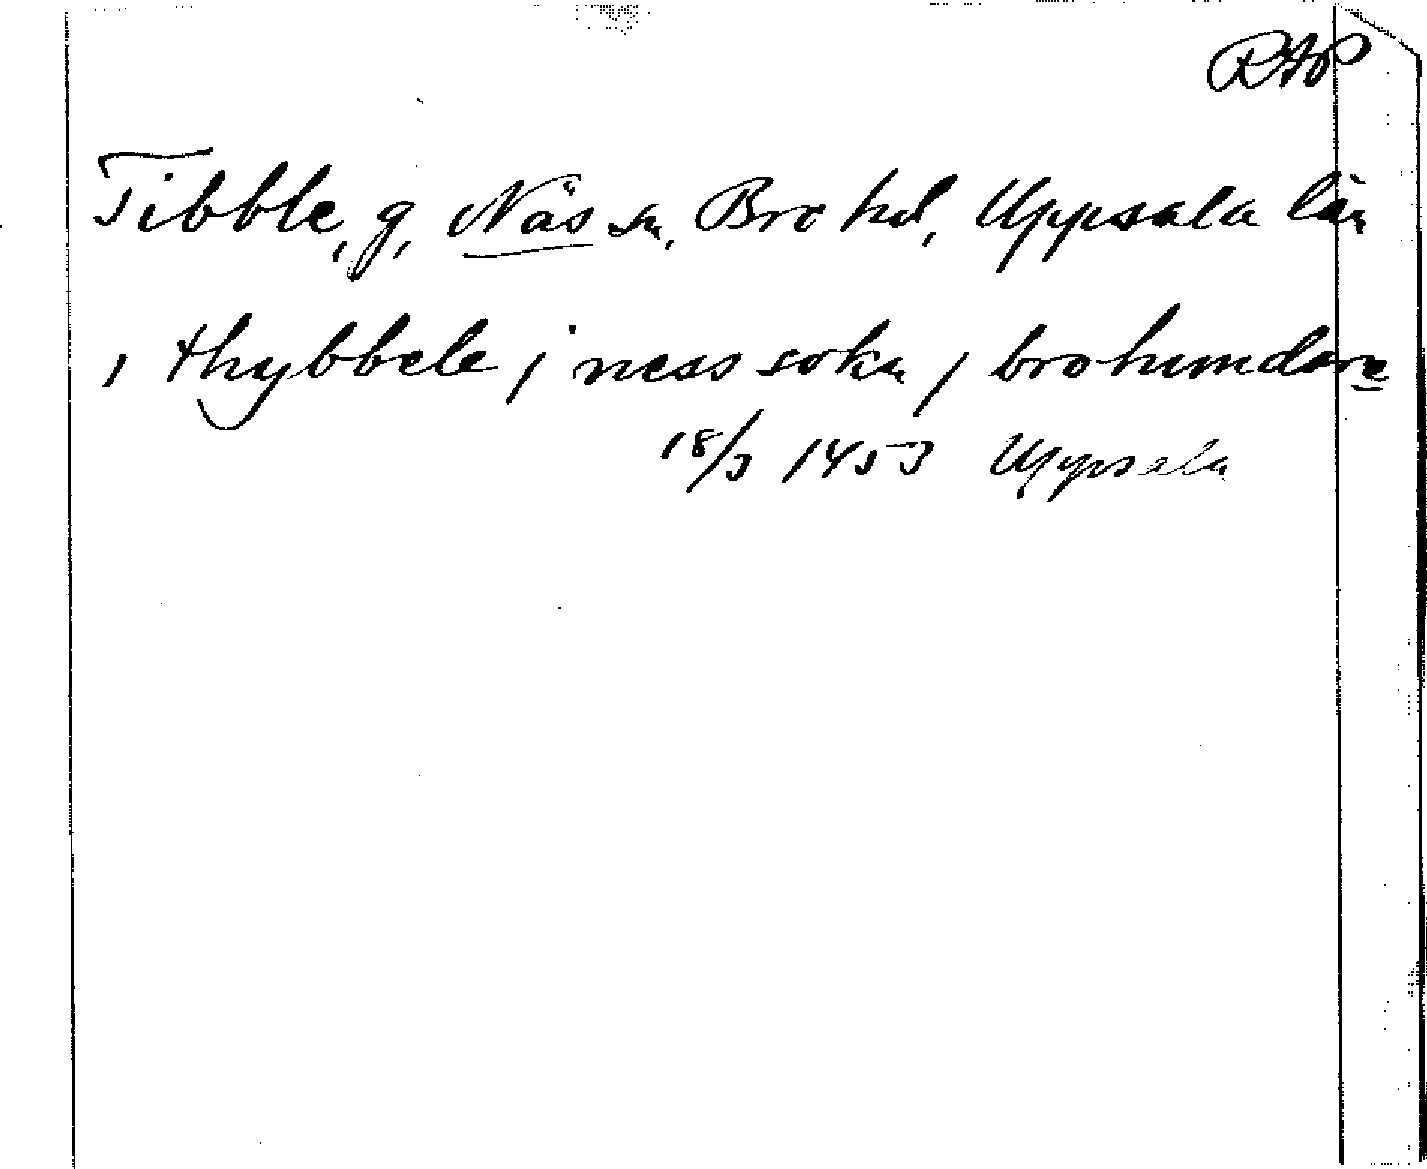 RAP
Tibble, g, Näs sn, Bro hd, Uppsala län
, thybbele j ness sokn j brohundare
18/3 1453 Uppsala